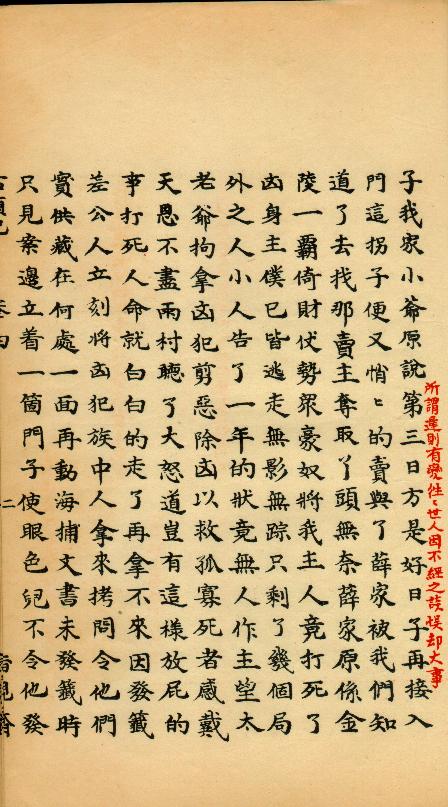 子我家小爺原說第三日方是好日子再接入
所謂遲則有變往〻世人因不經之談悞却大事
門這拐子便又悄〻的賣與了薛家被我們知
道了去找那賣主奪取丫頭無奈薛家原係金
陵一霸倚財仗勢眾豪奴將我主人竟打死了
凶身主僕已皆逃走無影無踪只剩了幾個局
外之人小人告了一年的狀竟無人作主望太
老爺拘拿凶犯剪惡除凶以救孤寡死者感戴
天恩不盡雨村聽了大怒道豈有這樣放屁的
事打死人命就白白的走了再拿不來因發籤
差公人立刻將凶犯族中人拿來拷問令他們
實供藏在何處一面再動海捕文書未發籤時
只見案邊立着一箇門子使眼色兒不令他發